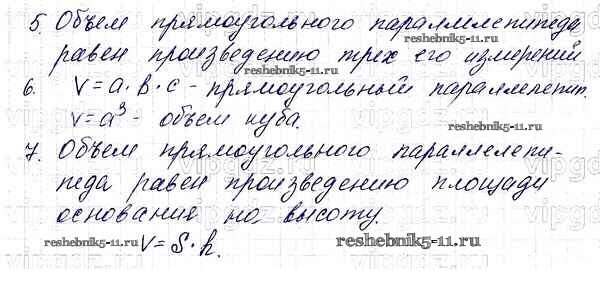 5. Объем прямоугольного параллелепипеда
равен произведению трех его измерений
reshebnik5-11.ru
6. V = a · b · c - прямоугольный параллелепип.
V = a³ - объем куба.
reshebnik5-11.ru
7. Объем прямоугольного параллелепи-
педа равен произведению площади
основания на высоту.
reshebnik5-11.ru V = S · h. reshebnik5-11.ru